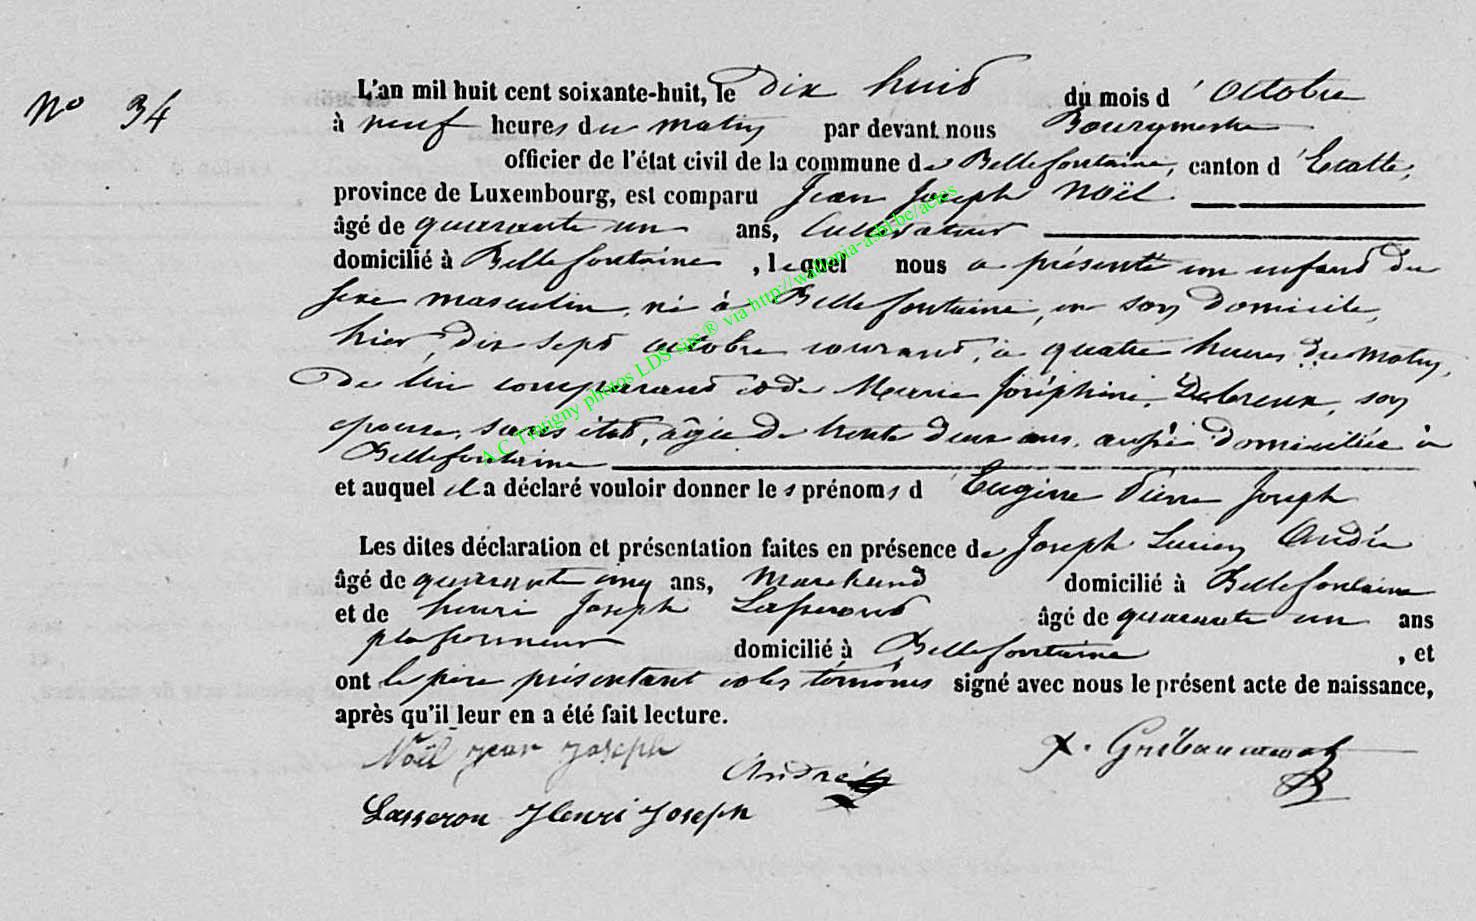 No 34
L'an mil huit cent soixante-huit, le dix huit du mois d'Octobre
à neuf heures du matin par devant nous Bourgmestre
officier de l'état civil de la commune de Bellefontaine, canton d'Etalle,
province de Luxembourg, est comparu Jean Joseph Noël
âgé de quarante un ans, Cultivateur
domicilié à Bellefontaine, lequel nous a présenté un enfant du
sexe masculin, né à Bellefontaine, en son domicile,
hier, dix sept octobre courant, à quatre heures du matin,
de lui comparant et de Marie Joséphine, son
épouse, sans état, âgée de trente deux ans, aussi domiciliée à
Bellefontaine
et auquel il a déclaré vouloir donner les prénoms d'Eugène Pierre Joseph
Les dites déclaration et présentation faites en présence de Joseph Lucien André
âgé de quarante cinq ans, Marchand domicilié à Bellefontaine
et de henri Joseph Lasseront âgé de quarante un ans
plafonneur domicilié à Bellefontaine, et
ont le père présentant et les témoins signé avec nous le présent acte de naissance,
après qu'il leur en a été fait lecture.
Noël Jean Joseph
André
Lasseron Henri Joseph
A.C Tintigny photos LDS site ® via http://wallonia-asbl.be/actes